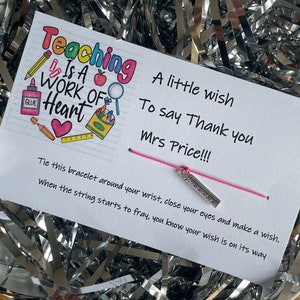 Teaching
IS A
WORK OF
Heart
GLUE
A little wish
To say Thank you
Mrs Price!!!
Tie this bracelet around your wrist, close your eyes and make a wish.
When the string starts to fray, you know your wish is on its way